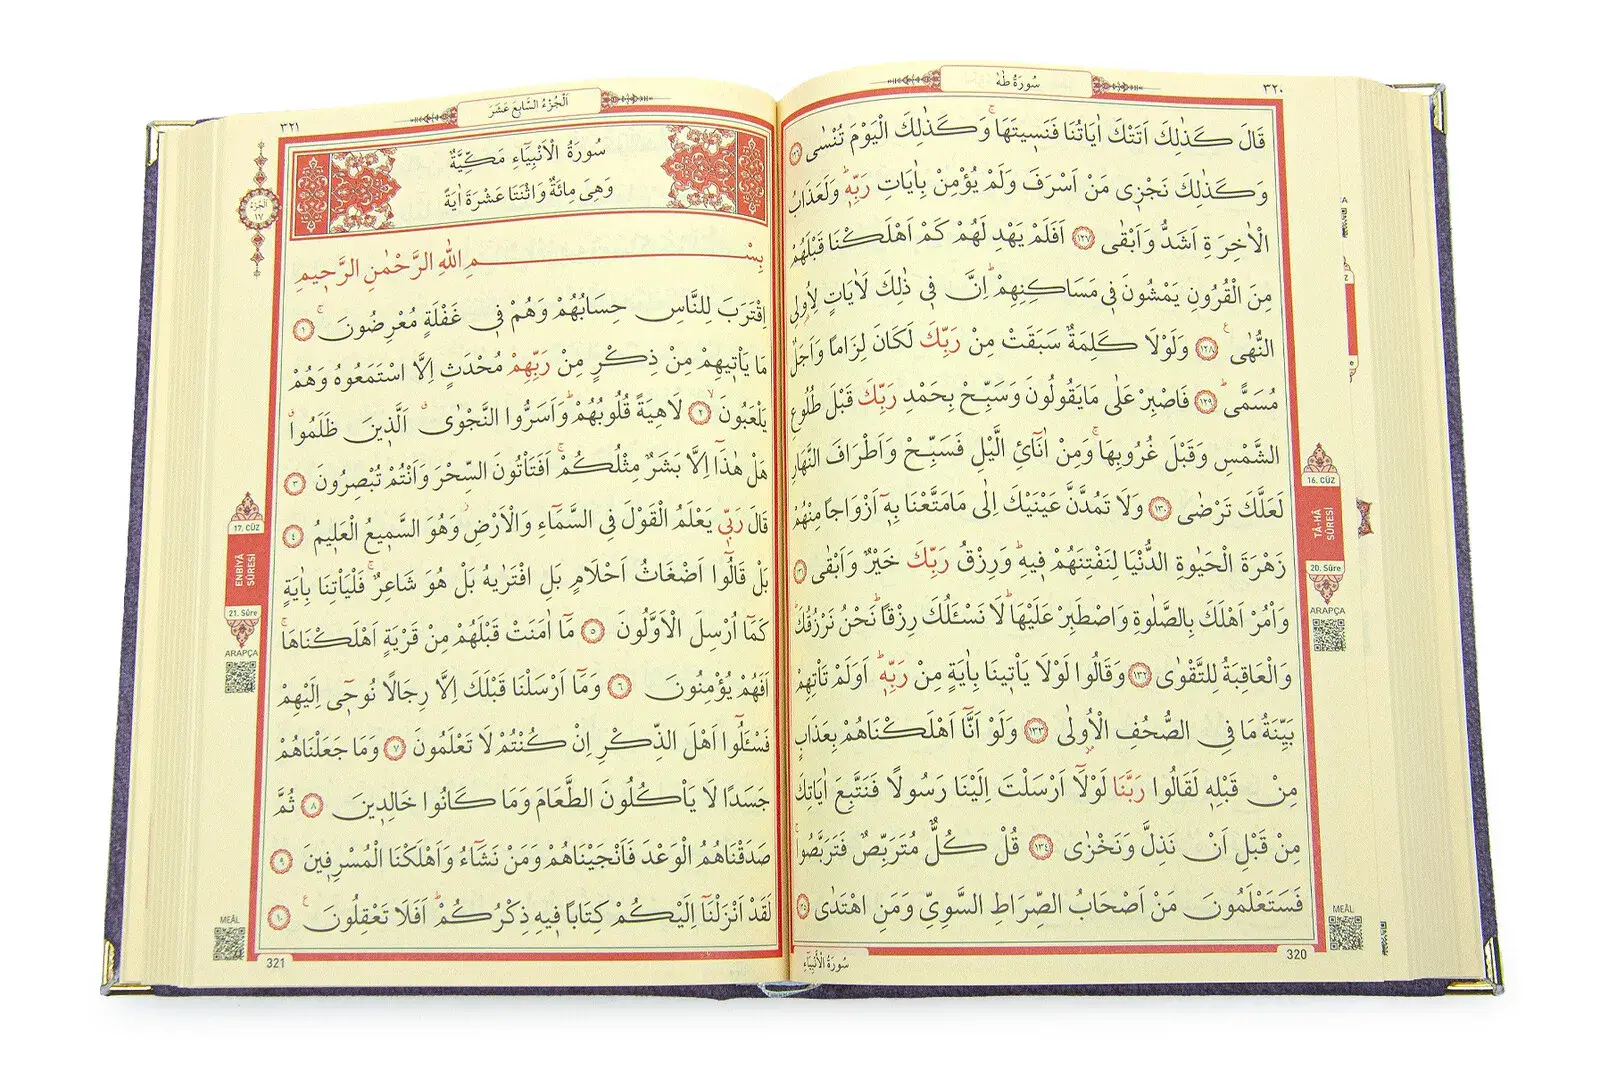 سُورَةُ طٰهٰ
٣٢٠
قَالَ كَذٰلِكَ اَتَتْكَ اٰيَاتُنَا فَنَس۪يتَهَاۚ وَكَذٰلِكَ الْيَوْمَ تُنْسٰى ﴿١٢٦﴾
وَكَذٰلِكَ نَجْز۪ي مَنْ اَسْرَفَ وَلَمْ يُؤْمِنْ بِاٰيَاتِ رَبِّه۪ۜ وَلَعَذَابُ
الْاٰخِرَةِ اَشَدُّ وَاَبْقٰى ﴿١٢٧﴾ اَفَلَمْ يَهْدِ لَهُمْ كَمْ اَهْلَكْنَا قَبْلَهُمْ
مِنَ الْقُرُونِ يَمْشُونَ ف۪ي مَسَاكِنِهِمْۜ اِنَّ ف۪ي ذٰلِكَ لَاٰيَاتٍ لِاُو۬لِي
النُّهٰى۟ ﴿١٢٨﴾ وَلَوْلَا كَلِمَةٌ سَبَقَتْ مِنْ رَبِّكَ لَكَانَ لِزَامًا وَاَجَلٌ
مُسَمًّىۜ ﴿١٢٩﴾ فَاصْبِرْ عَلٰى مَا يَقُولُونَ وَسَبِّحْ بِحَمْدِ رَبِّكَ قَبْلَ طُلُوعِ
الشَّمْسِ وَقَبْلَ غُرُوبِهَاۚ وَمِنْ اٰنَٓائِ الَّيْلِ فَسَبِّحْ وَاَطْرَافَ النَّهَارِ
لَعَلَّكَ تَرْضٰى ﴿١٣٠﴾ وَلَا تَمُدَّنَّ عَيْنَيْكَ اِلٰى مَا مَتَّعْنَا بِه۪ٓ اَزْوَاجًا مِنْهُمْ
زَهْرَةَ الْحَيٰوةِ الدُّنْيَا لِنَفْتِنَهُمْ ف۪يهِۜ وَرِزْقُ رَبِّكَ خَيْرٌ وَاَبْقٰى ﴿١٣١﴾
وَأْمُرْ اَهْلَكَ بِالصَّلٰوةِ وَاصْطَبِرْ عَلَيْهَاۜ لَا نَسْـَٔلُكَ رِزْقًاۜ نَحْنُ نَرْزُقُكَۜ
وَالْعَاقِبَةُ لِلتَّقْوٰى ﴿١٣٢﴾ وَقَالُوا لَوْلَا يَأْت۪ينَا بِاٰيَةٍ مِنْ رَبِّه۪ۜ اَوَلَمْ تَأْتِهِمْ
بَيِّنَةُ مَا فِي الصُّحُفِ الْاُو۫لٰى ﴿١٣٣﴾ وَلَوْ اَنَّٓا اَهْلَكْنَاهُمْ بِعَذَابٍ
مِنْ قَبْلِه۪ لَقَالُوا رَبَّنَا لَوْلَٓا اَرْسَلْتَ اِلَيْنَا رَسُولًا فَنَتَّبِعَ اٰيَاتِكَ
مِنْ قَبْلِ اَنْ نَذِلَّ وَنَخْزٰى ﴿١٣٤﴾ قُلْ كُلٌّ مُتَرَبِّصٌ فَتَرَبَّصُواۚ
فَسَتَعْلَمُونَ مَنْ اَصْحَابُ الصِّرَاطِ السَّوِيِّ وَمَنِ اهْتَدٰى ﴿١٣٥﴾
320
سُورَةُ الْاَنْبِيَاءِ
16. CÜZ
TÂ-HÂ SÛRESİ
20. Sûre
ARAPÇA
MEÂL
اَلْجُزْءُ السَّابِعَ عَشَرَ
٣٢١
سُورَةُ الْاَنْبِيَٓاءِ مَكِّيَّةٌ
وَهِيَ مِائَةٌ وَاثْنَتَا عَشْرَةَ اٰيَةً
بِسْمِ اللّٰهِ الرَّحْمٰنِ الرَّح۪يمِ
اِقْتَرَبَ لِلنَّاسِ حِسَابُهُمْ وَهُمْ ف۪ي غَفْلَةٍ مُعْرِضُونَۚ ﴿١﴾
مَا يَأْت۪يهِمْ مِنْ ذِكْرٍ مِنْ رَبِّهِمْ مُحْدَثٍ اِلَّا اسْتَمَعُوهُ وَهُمْ
يَلْعَبُونَۙ ﴿٢﴾ لَاهِيَةً قُلُوبُهُمْۜ وَاَسَرُّوا النَّجْوٰىۗ اَلَّذ۪ينَ ظَلَمُواۗ
هَلْ هٰذَٓا اِلَّا بَشَرٌ مِثْلُكُمْۚ اَفَتَأْتُونَ السِّحْرَ وَاَنْتُمْ تُبْصِرُونَ ﴿٣﴾
قَالَ رَبّ۪ي يَعْلَمُ الْقَوْلَ فِي السَّمَٓاءِ وَالْاَرْضِۘ وَهُوَ السَّم۪يعُ الْعَل۪يمُ ﴿٤﴾
بَلْ قَالُٓوا اَضْغَاثُ اَحْلَامٍ بَلِ افْتَرٰيهُ بَلْ هُوَ شَاعِرٌۚ فَلْيَأْتِنَا بِاٰيَةٍ
كَمَٓا اُرْسِلَ الْاَوَّلُونَ ﴿٥﴾ مَٓا اٰمَنَتْ قَبْلَهُمْ مِنْ قَرْيَةٍ اَهْلَكْنَاهَاۚ
اَفَهُمْ يُؤْمِنُونَ ﴿٦﴾ وَمَٓا اَرْسَلْنَا قَبْلَكَ اِلَّا رِجَالًا نُوح۪ٓي اِلَيْهِمْ
فَسْـَٔلُٓوا اَهْلَ الذِّكْرِ اِنْ كُنْتُمْ لَا تَعْلَمُونَ ﴿٧﴾ وَمَا جَعَلْنَاهُمْ
جَسَدًا لَا يَأْكُلُونَ الطَّعَامَ وَمَا كَانُوا خَالِد۪ينَ ﴿٨﴾ ثُمَّ
صَدَقْنَاهُمُ الْوَعْدَ فَاَنْجَيْنَاهُمْ وَمَنْ نَشَٓاءُ وَاَهْلَكْنَا الْمُسْرِف۪ينَ ﴿٩﴾
لَقَدْ اَنْزَلْنَٓا اِلَيْكُمْ كِتَابًا ف۪يهِ ذِكْرُكُمْۜ اَفَلَا تَعْقِلُونَ۟ ﴿١٠﴾
321
اَلْجُزْءُ
١٧
17. CÜZ
ENBİYÂ SÛRESİ
21. Sûre
ARAPÇA
MEÂL